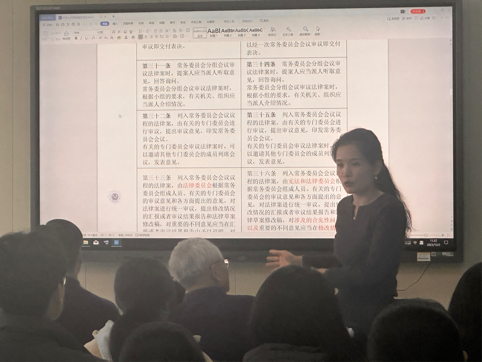 审议即交付表决。
第三十一条　常务委员会分组会议审
议法律案时，提案人应当派人听取意
见，回答询问。
常务委员会分组会议审议法律案时，
根据小组的要求，有关机关、组织应
当派人介绍情况。
第三十二条　列入常务委员会会议议
程的法律案，由有关的专门委员会进
行审议，提出审议意见，印发常务委
员会会议。
有关的专门委员会审议法律案时，可
以邀请其他专门委员会的成员列席会
议，发表意见。
第三十三条　列入常务委员会会议议
程的法律案，由法律委员会根据常务
委员会组成人员、有关的专门委员会
的审议意见和各方面提出的意见，对
法律案进行统一审议，提出修改情况
的汇报或者审议结果报告和法律草案
修改稿，对重要的不同意见应当在汇
以经一次常务委员会会议审议即交付
表决。
第三十四条　常务委员会分组会议审
议法律案时，提案人应当派人听取意
见，回答询问。
常务委员会分组会议审议法律案时，
根据小组的要求，有关机关、组织应
当派人介绍情况。
第三十五条　列入常务委员会会议议
程的法律案，由有关的专门委员会进
行审议，提出审议意见，印发常务委
员会会议。
有关的专门委员会审议法律案时，可
以邀请其他专门委员会的成员列席会
议，发表意见。
第三十六条　列入常务委员会会议议
程的法律案，由宪法和法律委员会根
据常务委员会组成人员、有关的专门
委员会的审议意见和各方面提出的意
见，对法律案进行统一审议，提出修
改情况的汇报或者审议结果报告和法
律草案修改稿，对涉及的合宪性问题
以及重要的不同意见应当在